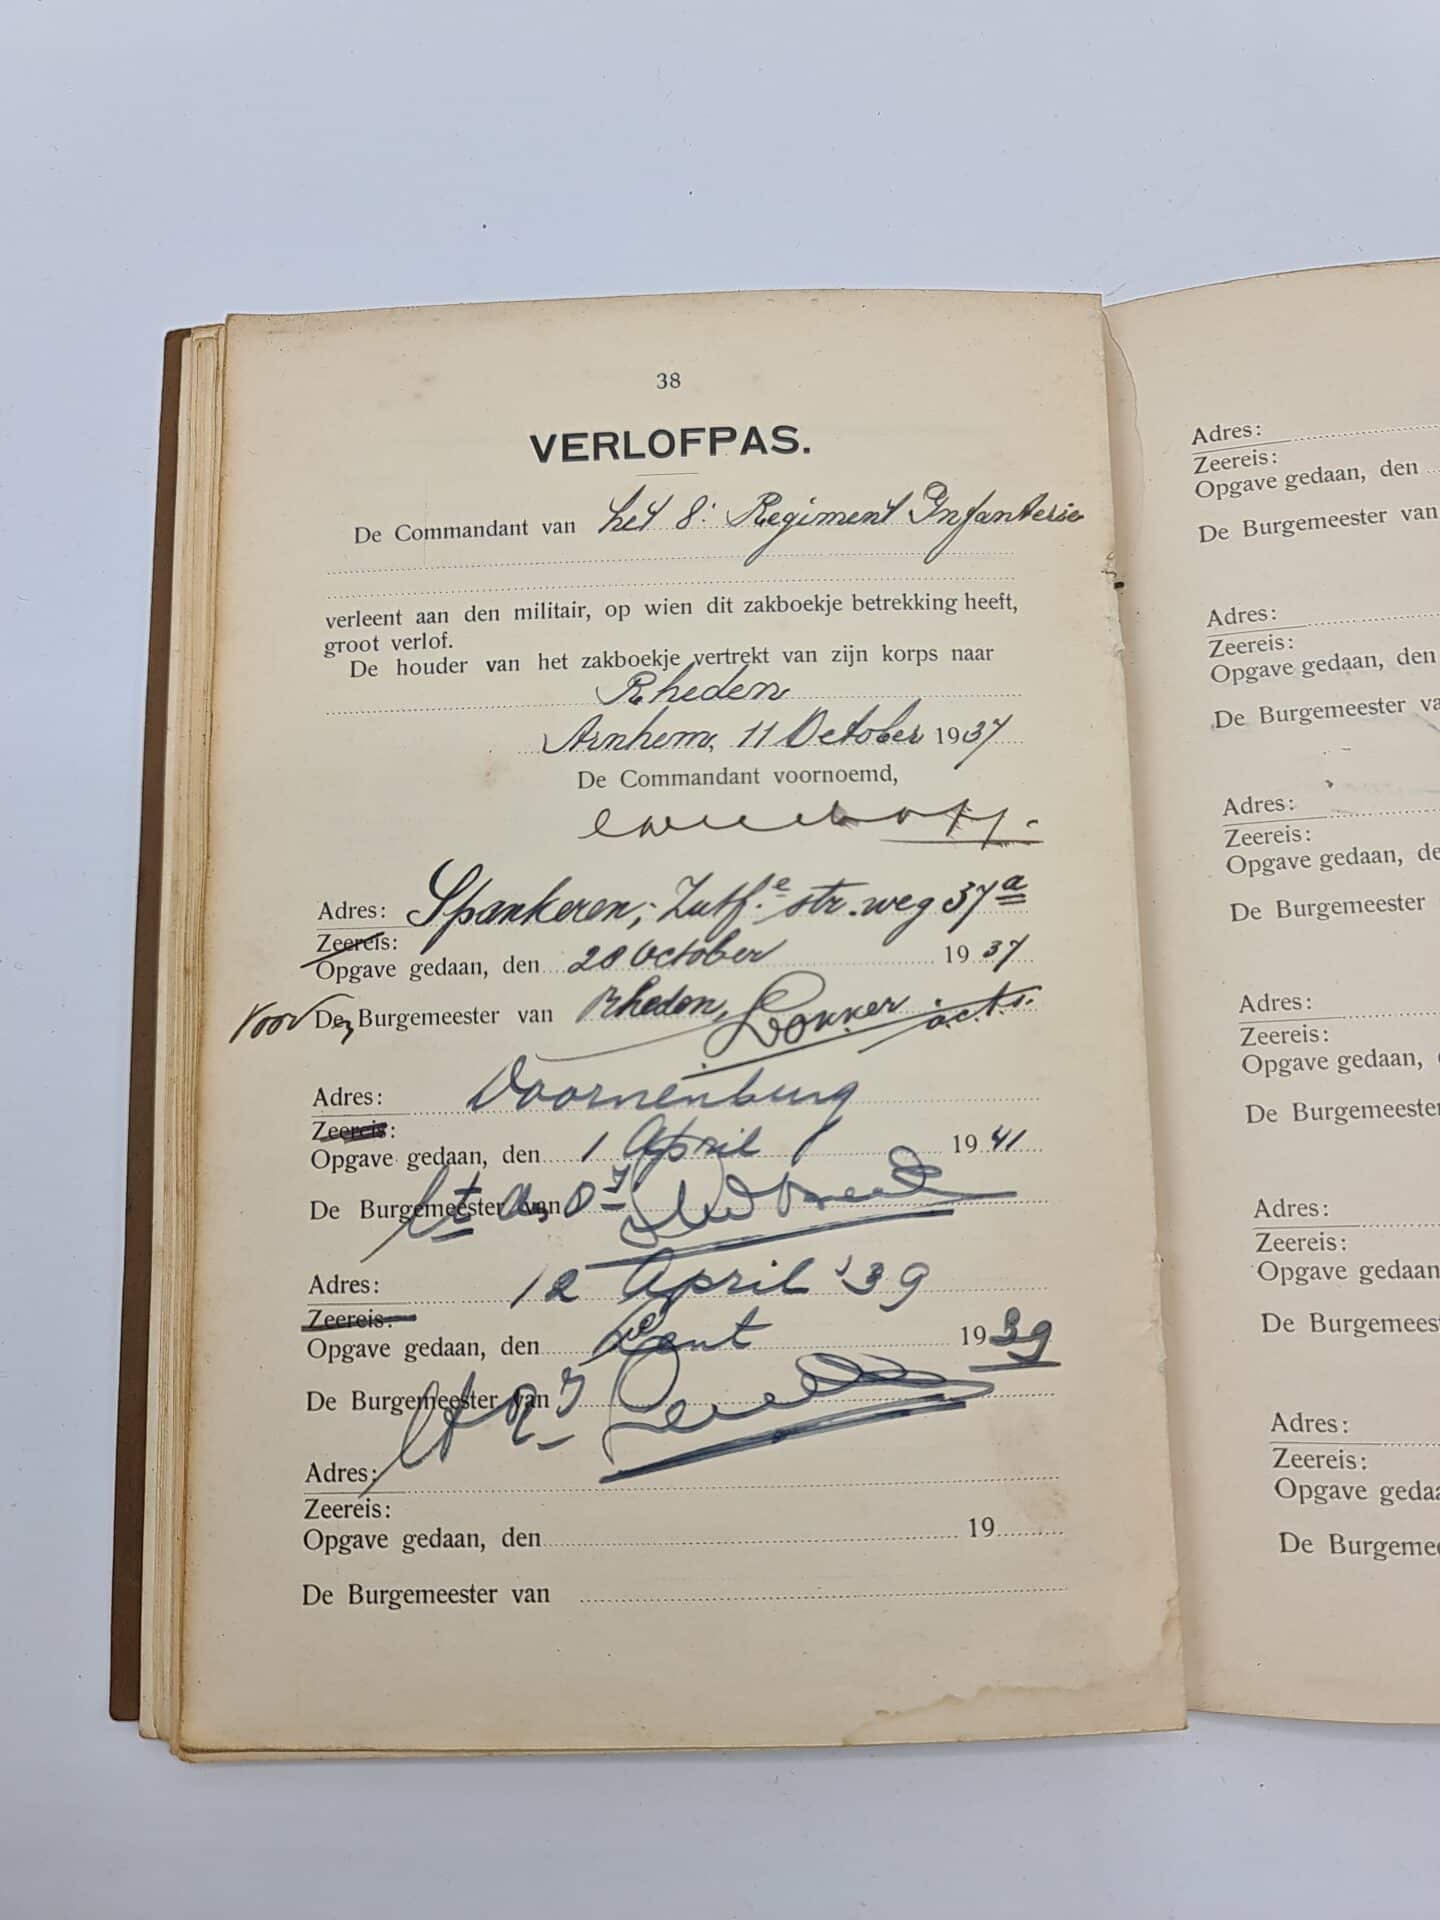 38
VERLOFPAS.
De Commandant van het 8e Regiment Infanterie
verleent aan den militair, op wien dit zakboekje betrekking heeft,
groot verlof.
De houder van het zakboekje vertrekt van zijn korps naar
Rheden
Arnhem, 11 October 1937
De Commandant voornoemd,
Adres: Spankeren, Zutf.e str.weg 37a
Zeereis:
Opgave gedaan, den 20 October 1937
voor Den Burgemeester van Rheden,
Adres: Doornenburg
Zeereis:
Opgave gedaan, den 1 April 1941
De Burgemeester van
Adres: 12 April '39
Zeereis:
Opgave gedaan, den Lent 1939
De Burgemeester van
Adres:
Zeereis:
Opgave gedaan, den 19
De Burgemeester van
Adres:
Zeereis:
Opgave gedaan, den
De Burgemeester van
Adres:
Zeereis:
Opgave gedaan, den
De Burgemeester va
Adres:
Zeereis:
Opgave gedaan, de
De Burgemeester
Adres:
Zeereis:
Opgave gedaan,
De Burgemeester
Adres:
Zeereis:
Opgave gedaan
De Burgemeest
Adres:
Zeereis:
Opgave gedaa
De Burgemee